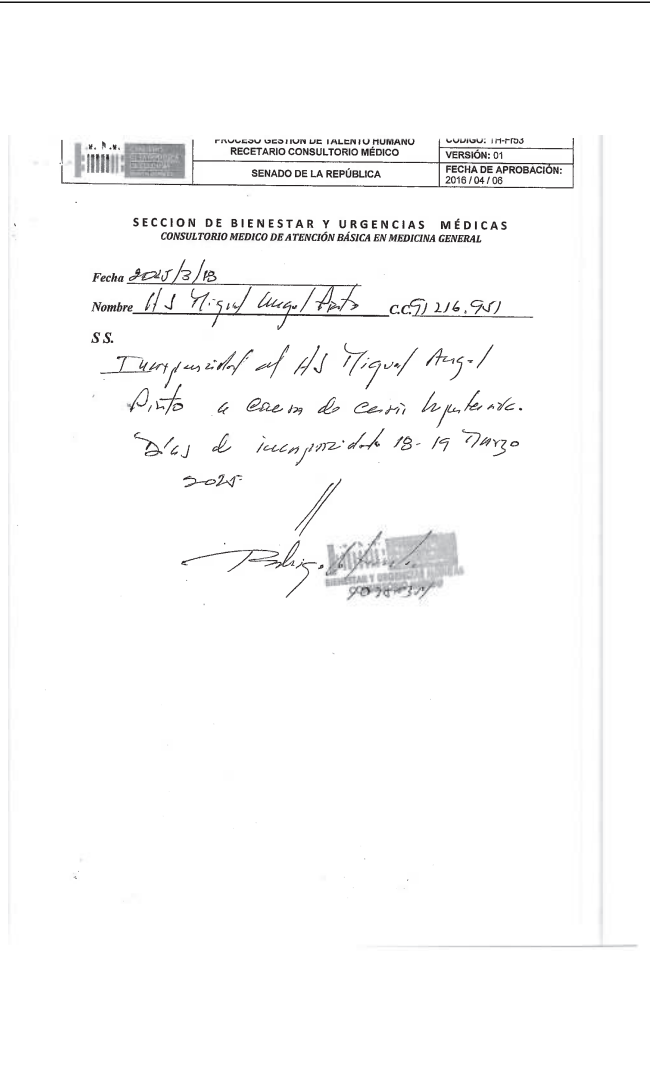 PROCESO GESTIÓN DE TALENTO HUMANO
RECETARIO CONSULTORIO MÉDICO
SENADO DE LA REPÚBLICA
CODIGO: TH-Fr53
VERSIÓN: 01
FECHA DE APROBACIÓN:
2016 / 04 / 06
SECCION DE BIENESTAR Y URGENCIAS MÉDICAS
CONSULTORIO MEDICO DE ATENCIÓN BÁSICA EN MEDICINA GENERAL
Fecha 2025/3/18
Nombre HS Miguel Angel Pinto C.C. 91 216.951
S S.
Incapacidad al HS Miguel Angel
Pinto a causa de crisis hipertensiva.
Días de incapacidad 18-19 Marzo
2025
Rodrigo
BIENESTAR Y URGENCIAS MÉDICAS